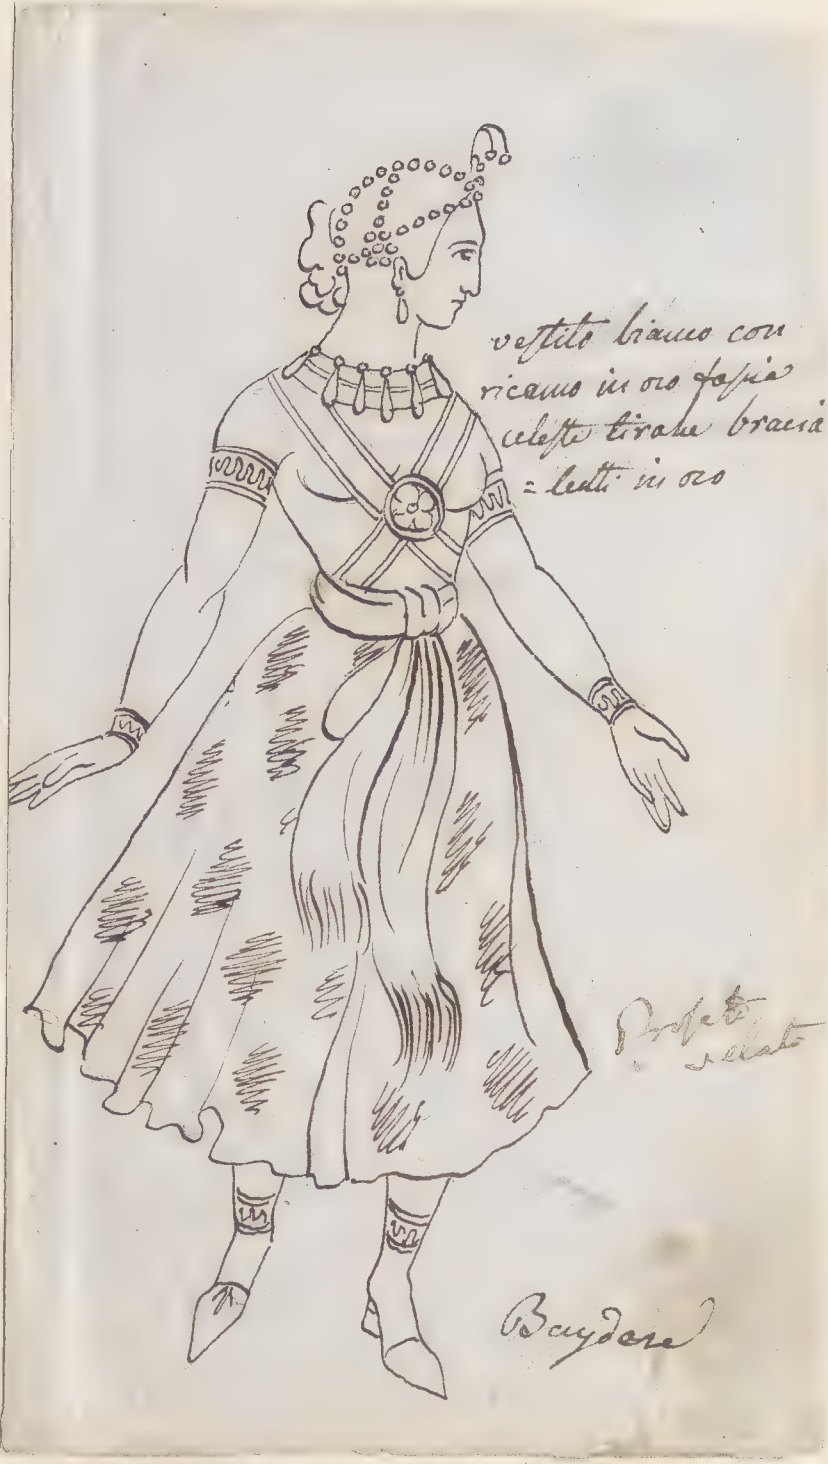 vestito bianco con
ricamo in oro fascia
celeste tirane bracia
= letti in oro
Profeta
velato
Baydere